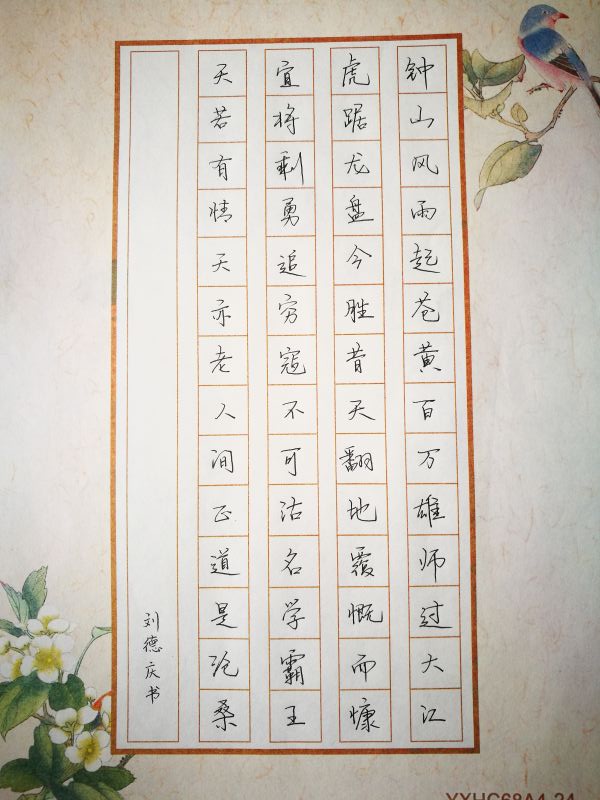 钟山风雨起苍黄百万雄师过大江
虎踞龙盘今胜昔天翻地覆慨而慷
宜将剩勇追穷寇不可沽名学霸王
天若有情天亦老人间正道是沧桑
刘德庆书
YXHG68A4-24